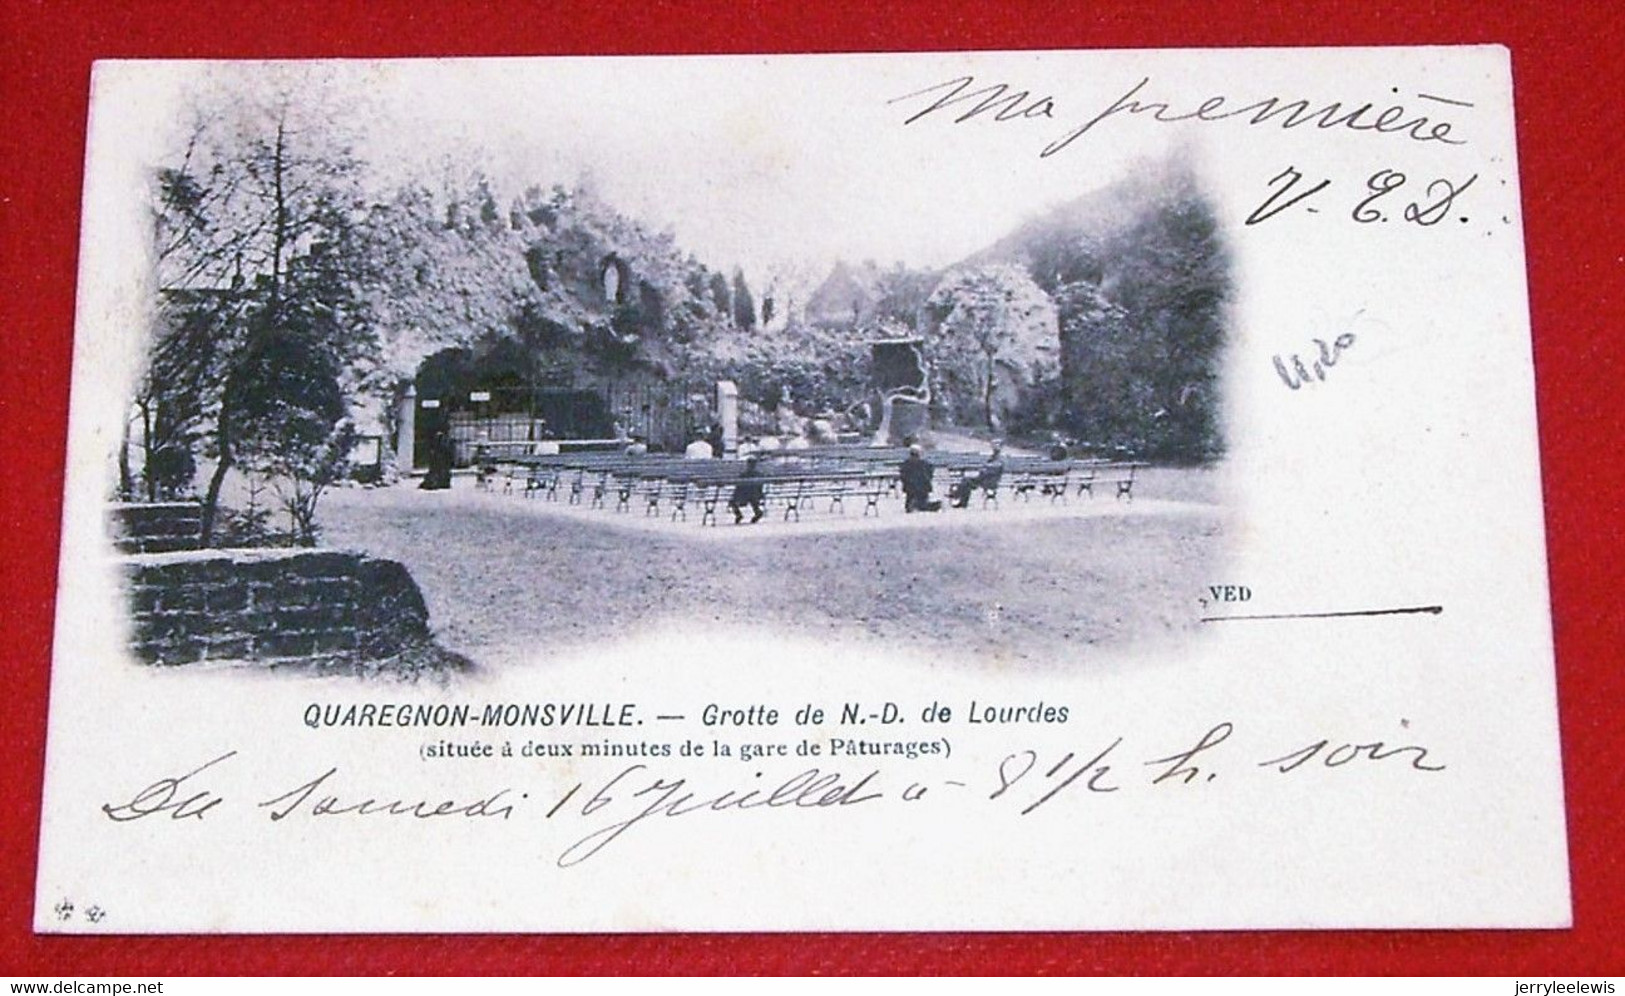 Ma première
V. E. D.
VED
QUAREGNON-MONSVILLE. — Grotte de N.-D. de Lourdes
(située à deux minutes de la gare de Pâturages)
Du Samedi 16 Juillet à 8 1/2 h. soir
www.delcampe.net
jerryleelewis